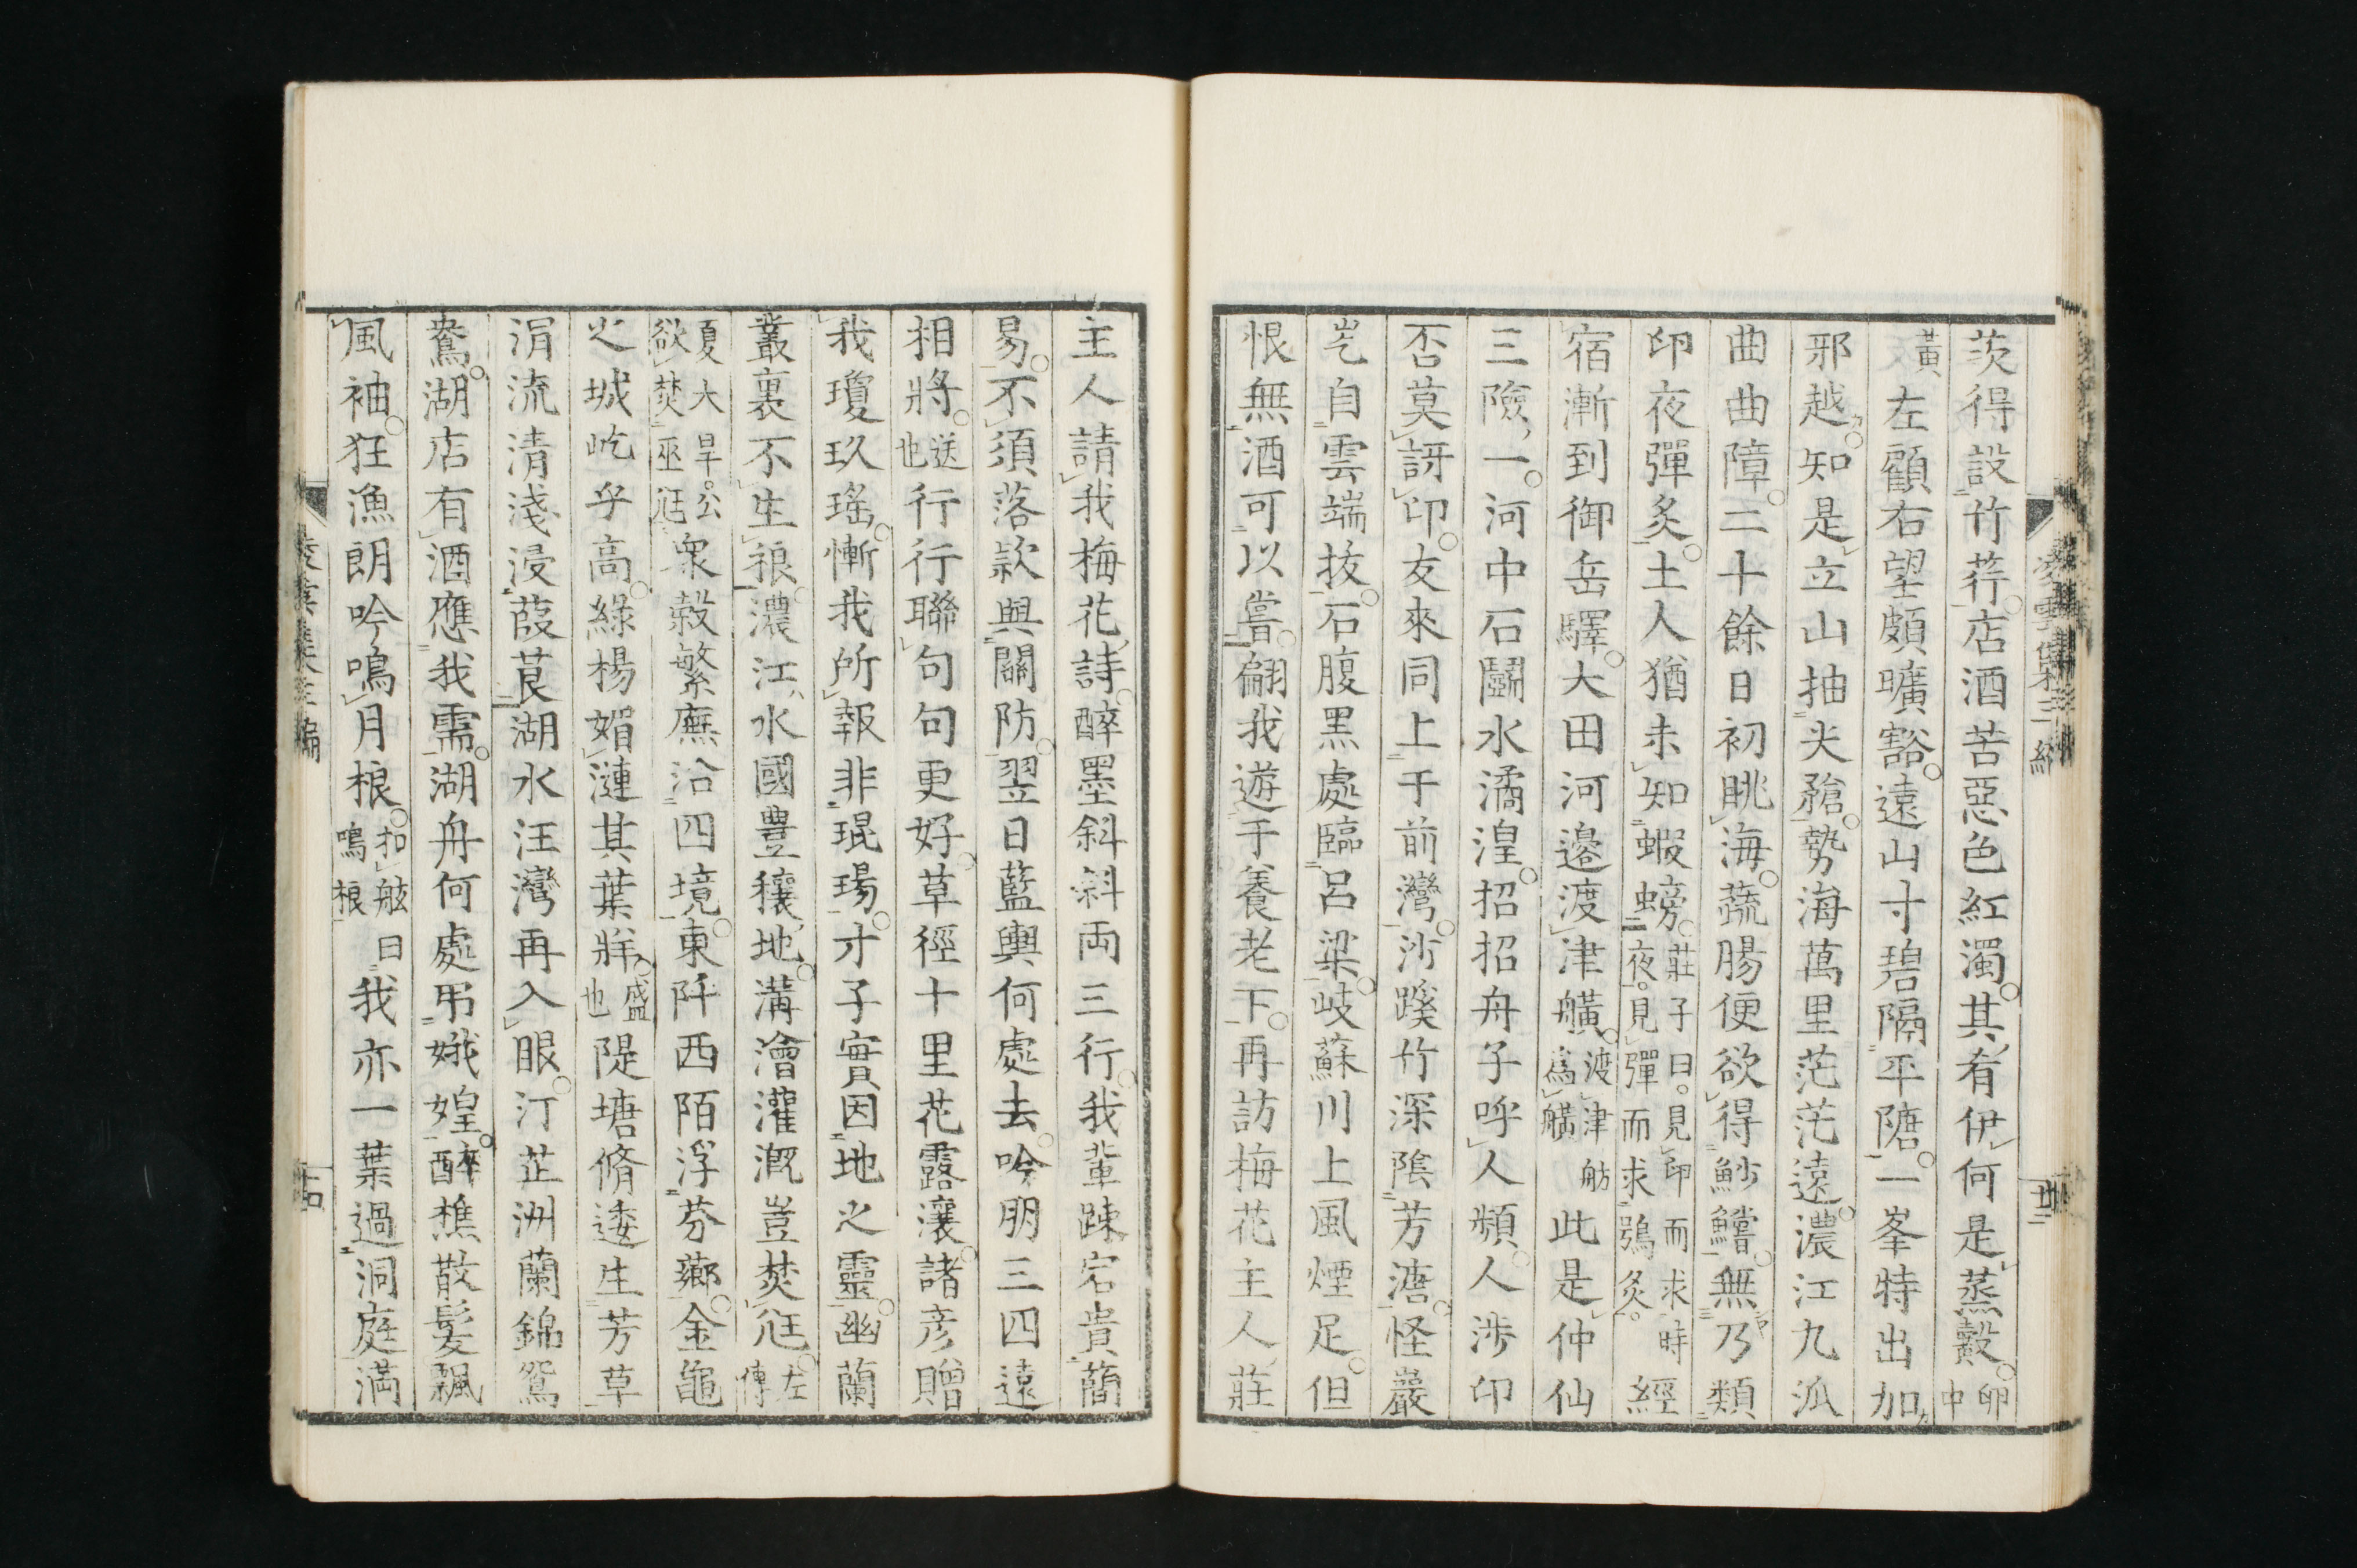 茨得設竹荐店酒苦惡色紅濁其肴伊何是蒸㲉卵中
黃左顧右望頗曠豁遠山寸碧隔平隄一峯特出加
邪越知是立山抽尖䂎勢海萬里茫茫遠濃江九派
曲曲障二十餘日初眺海蔬腸便欲得魦鱨無乃類
卬夜彈炙土人猶未知蝦螃莊子曰見卬而求時夜見彈而求鴞炙經
宿漸到御岳驛大田河邉渡津艤渡津舫爲艤此是仲仙
三險一河中石鬪水潏湟招招舟子呼人頻人涉卬
否莫訝卬友來同上于前灣沙蹊竹深隂芳溏怪巖
屹自雲端抜石腹黑處臨呂梁岐蘇川上風煙足但
恨無酒可以嘗翩我遊于養老下再訪梅花主人莊
主人請我梅花詩醉墨斜斜両三行我輩踈宕貴簡
易不須落款與關防翌日藍輿何處去吟朋三四遠
相將送也行行聯句句更好草徑十里花露瀼諸彦贈
我瓊玖瑤慚我所報非琨瑒才子實因地之靈幽蘭
叢裏不生稂濃江水國豊穰地溝澮灌漑豈焚尪左傳
夏大旱公欲焚巫尪衆榖繁廡治四境東阡西陌浮芬薌金龜
之城屹乎高綠楊媚漣其葉牂盛也隄塘脩逶生芳草
涓流清淺浸葭茛湖水汪灣再入眼汀芷洲蘭錦鴛
鴦湖店有酒應我需湖舟何處弔娥媓醉樵散髮飄
風袖狂漁朗吟鳴月桹扣舷曰鳴桹我亦一葉過洞庭満